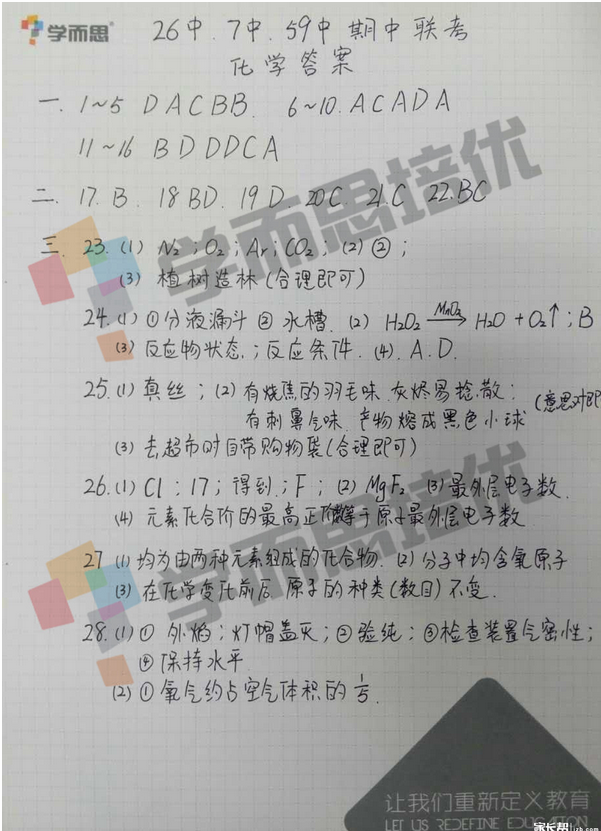 学而思
26中.7中.59中 期中联考
化学答案
一. 1~5 DACBB. 6~10. ACADA
11~16 BDDDCA
二. 17. B. 18 BD. 19 D. 20C. 21.C 22.BC
学而思培优
三. 23. (1) N₂;O₂;Ar;CO₂; (2) ②;
(3) 植树造林(合理即可)
24. (1) ①分液漏斗 ② 水槽. (2) H₂O₂ MnO₂→ H₂O + O₂↑; B
(3) 反应物状态.;反应条件. (4). A.D.
25. (1) 真丝; (2) 有烧焦的羽毛味.灰烬易捻散;
有刺鼻气味.产物熔成黑色小球 (意思对即
(3) 去超市时自带购物袋(合理即可)
26. (1) Cl; 17; 得到.; F; (2) MgF₂ (3) 最外层电子数.
(4) 元素化合价的最高正价等于原子最外层电子数
27 (1) 均为由两种元素组成的化合物. (2) 分子中均含氧原子
(3) 在化学变化前后 原子的种类(数目)不变.
学而思培优
28. (1) ① 外焰; 灯帽盖灭; ② 验纯; ③检查装置气密性;
④ 保持水平
(2) ① 氧气约占空气体积的 1/5.
让我们重新定义教育
LET US REDEFINE EDUCATION
家长帮 jzb.com